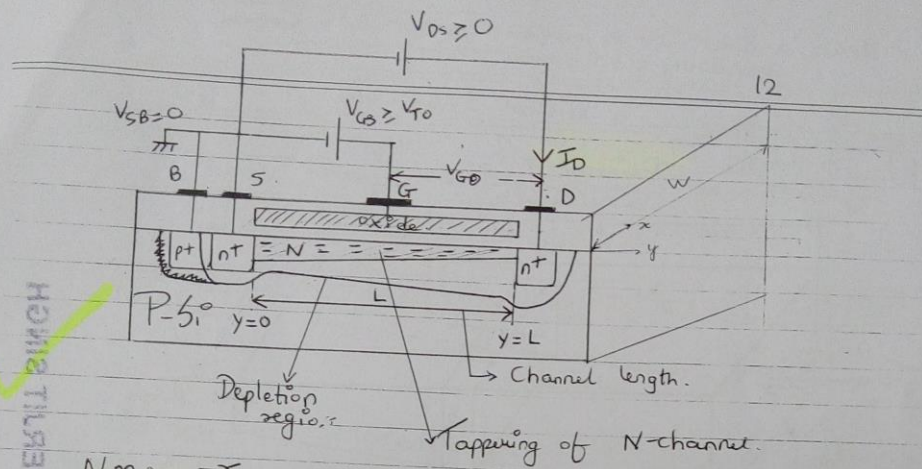 V_DS ≥ 0
12
V_SB=0
V_GB ≥ V_T0
V_GD
I_D
B
S
G
D
W
oxide
x
y
p+
n+
= N = = = = =
n+
P-Si
y=0
L
y=L
Channel length.
Depletion
region
Tappering of N-channel.